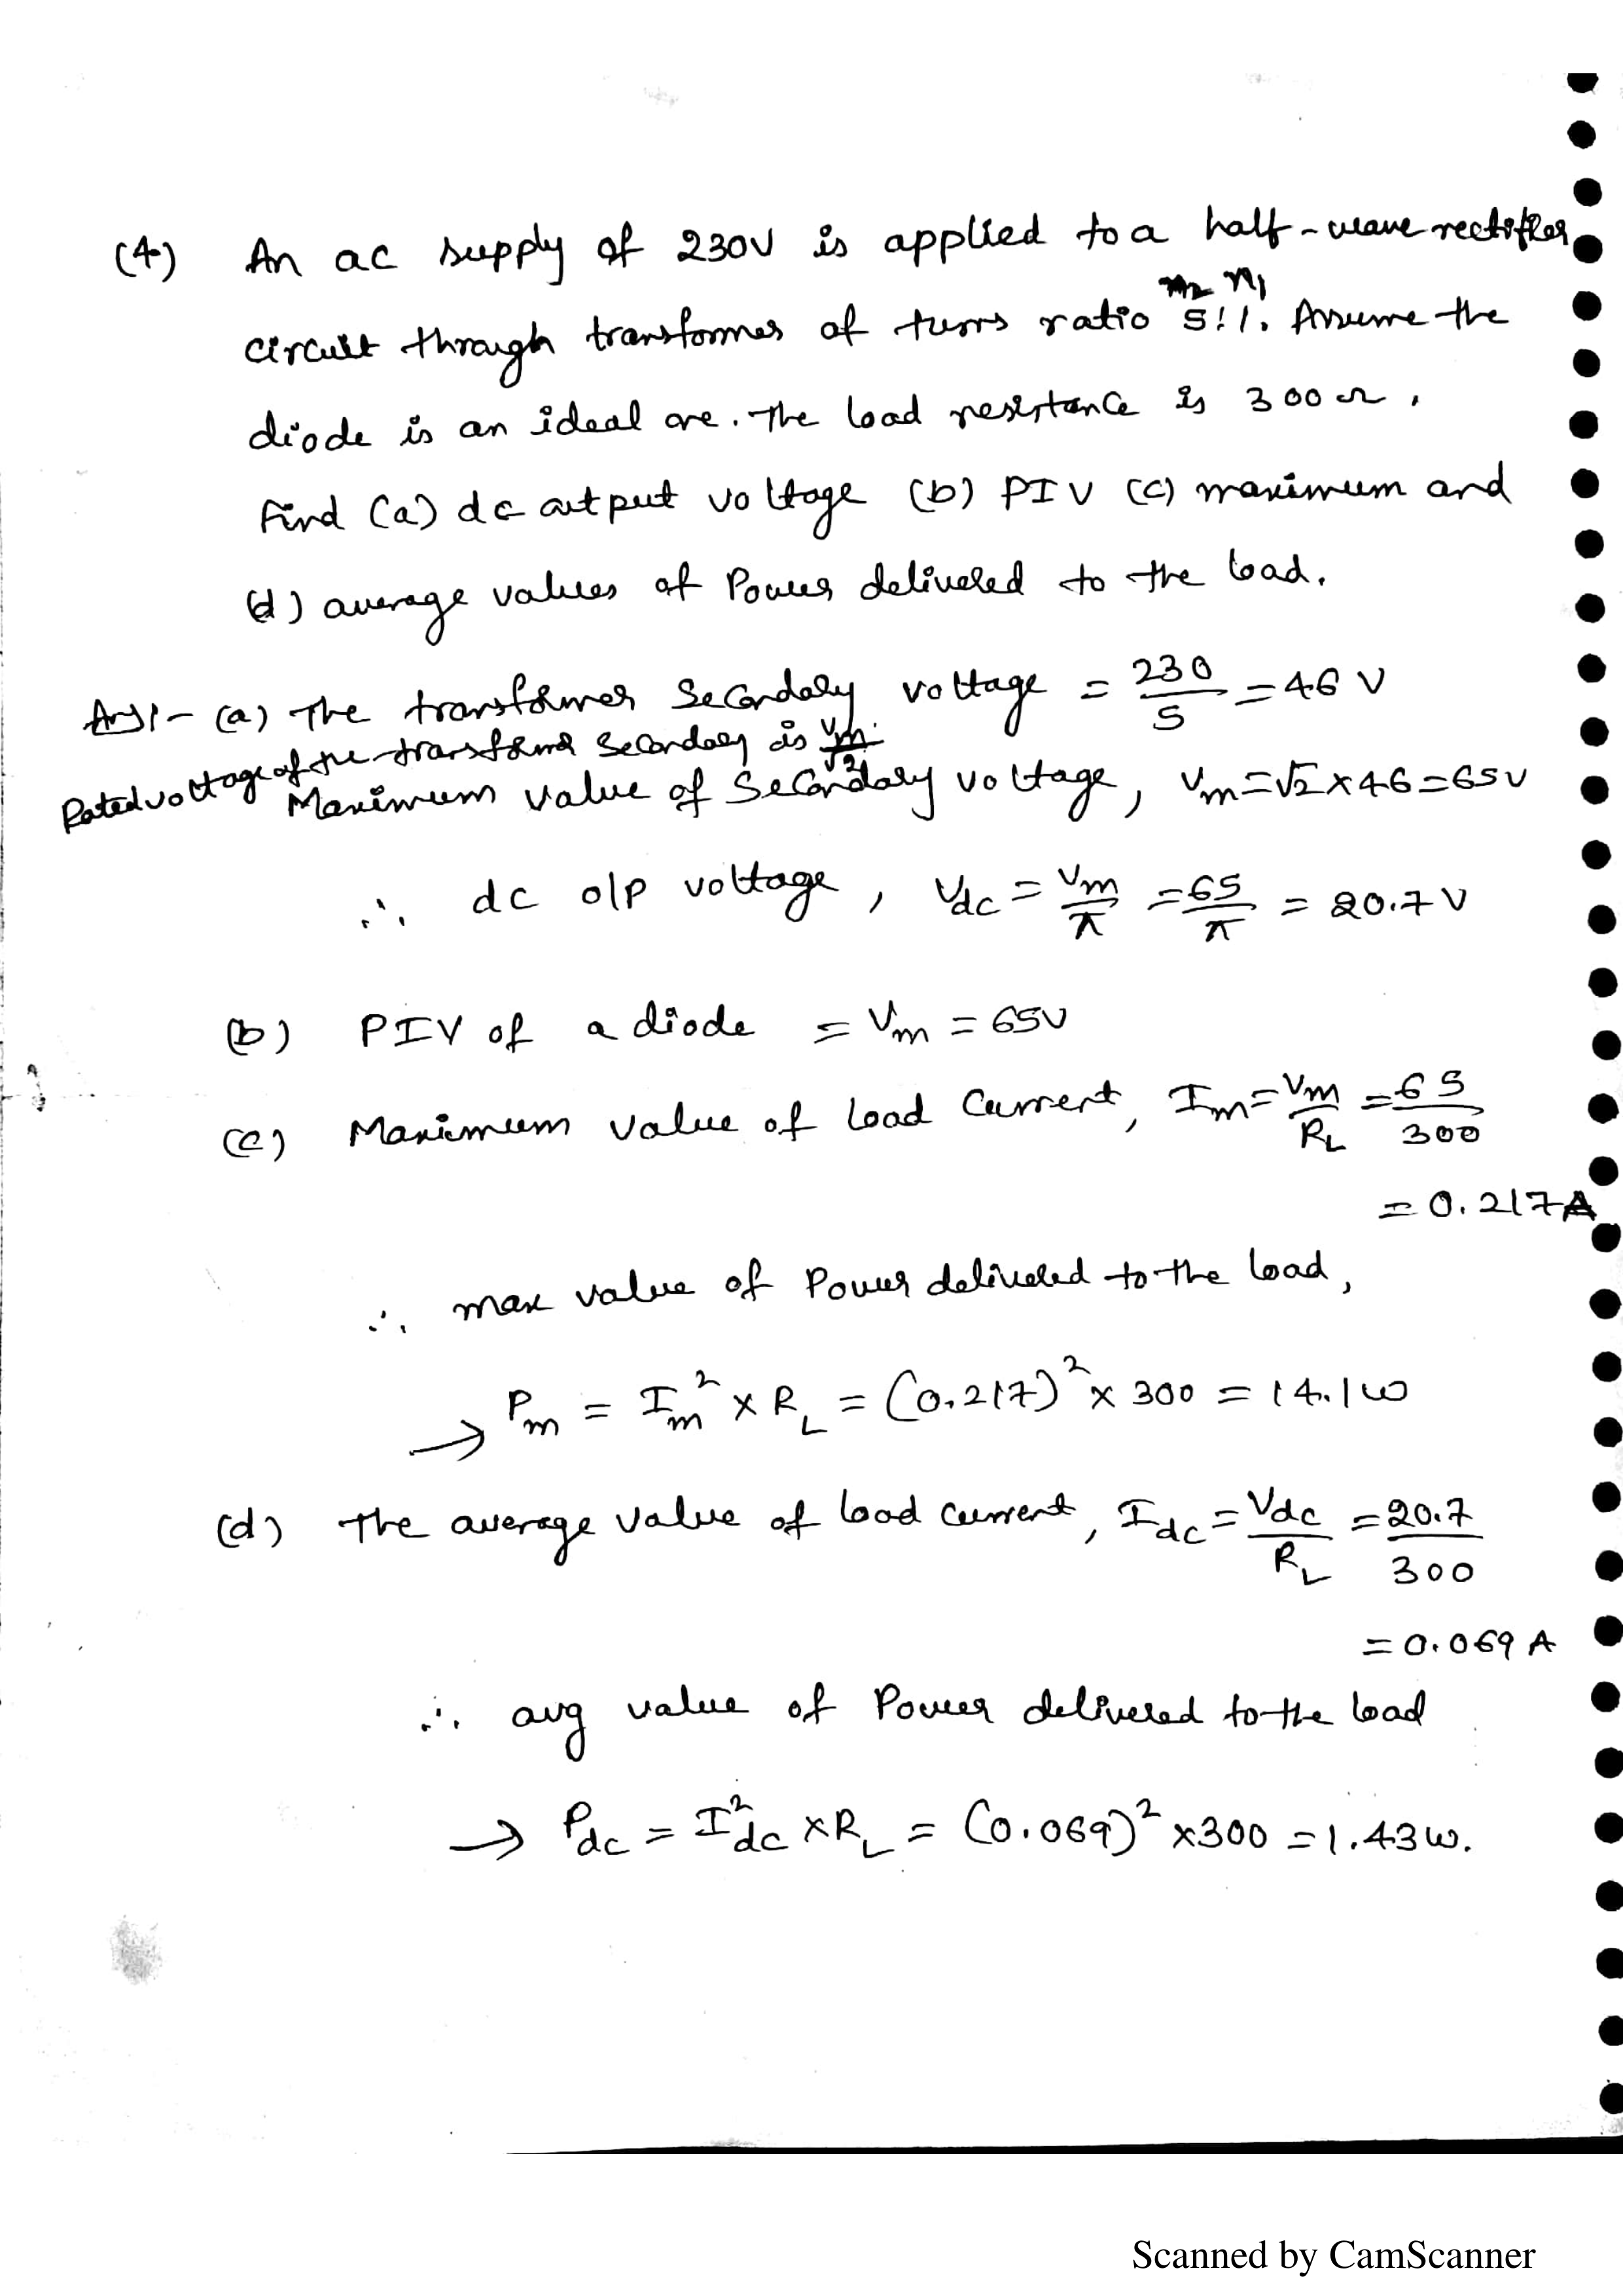 (4) An ac supply of 230V is applied to a half-wave rectifier
n2 n1
circuit through transformer of turns ratio 5:1. Assume the
diode is an ideal one. The load resistance is 300Ω.
Find (a) dc output voltage (b) PIV (c) maximum and
(d) average values of Power delivered to the load.
Ans:- (a) The transformer Secondary voltage = 230/5 = 46 V
Rated voltage of the transformer secondary is Vm/√2.
Maximum value of Secondary voltage, Vm = √2 × 46 = 65V
∴ dc o/p voltage, Vdc = Vm/π = 65/π = 20.7 V
(b) PIV of a diode = Vm = 65V
(c) Maximum value of load Current, Im = Vm/RL = 65/300
= 0.217A
∴ max value of Power delivered to the load,
→ Pm = Im² × RL = (0.217)² × 300 = 14.1W
(d) The average value of load current, Idc = Vdc/RL = 20.7/300
= 0.069 A
∴ avg value of Power delivered to the load
→ Pdc = I²dc × RL = (0.069)² × 300 = 1.43W.
Scanned by CamScanner